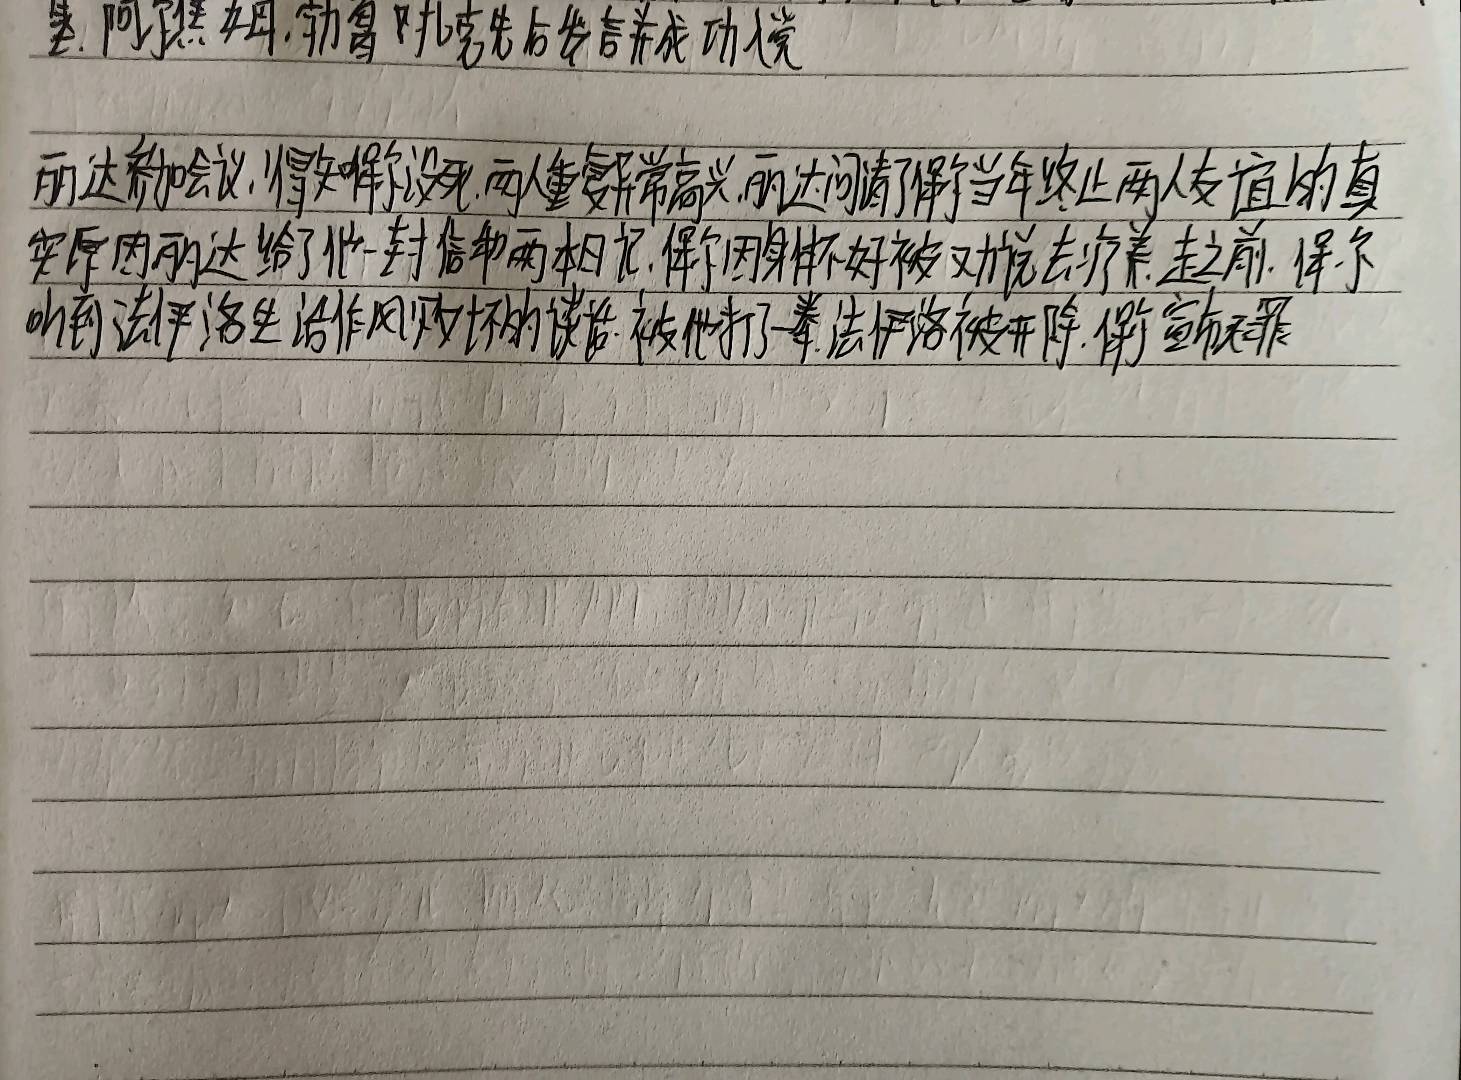 阿尔焦姆.勃鲁扎克先后发言并成功入党
丽达参加会议,得知保尔没死.两人重复异常高兴.丽达问清了保尔当年终止两人友谊的真
实原因丽达给了他一封信和两本日记.保尔因身体不好被劝说去疗养.走之前.保尔
听到法伊洛生活作风败坏的谈话.被他打了一拳.法伊洛被开除.保尔宣布无罪